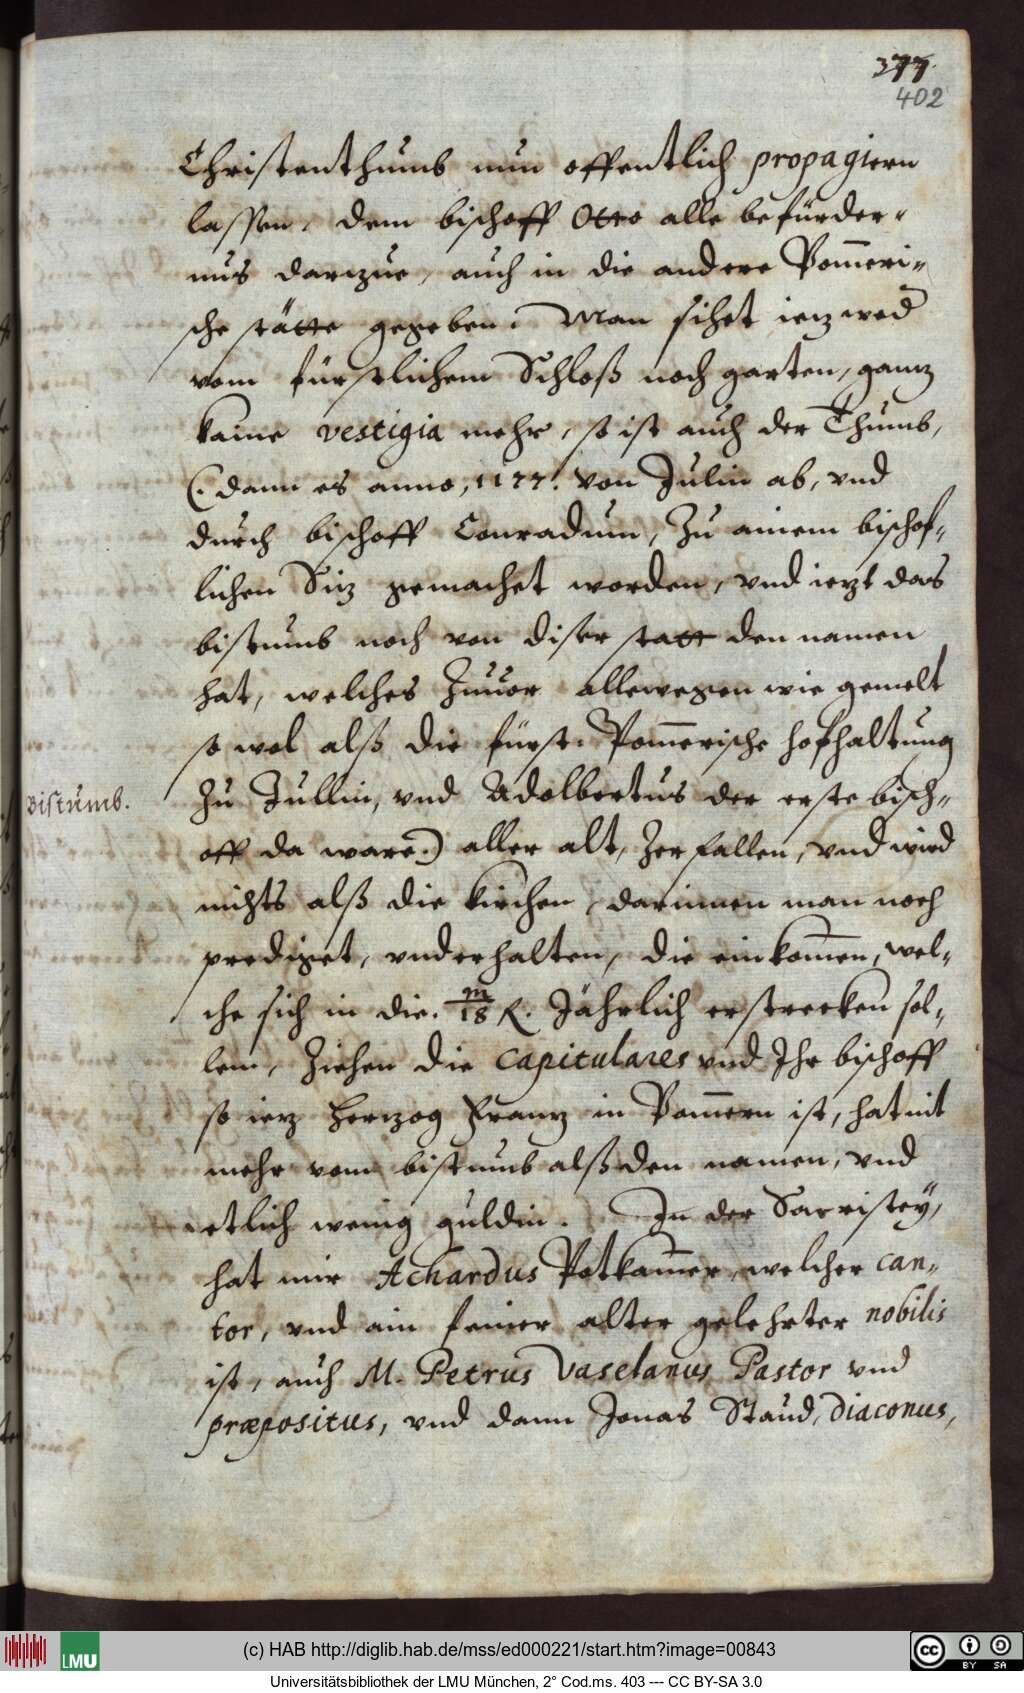 377.
402
Christenthumb nun offentlich propagiern
lassen, dem bischoff Otto alle befürder-
nus darzue, auch in die andere Pom̄eri-
sche stätte gegeben. Man sihet iez wed
vom fürstlichem Schloß noch garten, ganz
kaine vestigia mehr, so ist auch der Thumb,
(. dann es anno, 1177. von Julin ab, vnd
durch bischoff Conradum, Zu ainem bischof-
lichen Siz gemachet worden, vnd iezt das
bistumb noch von diser statt den namen
hat, welches Zuuor allewegen wie gemelt
so wol alß die fürst. Pom̄erische hofhaltung
Bistumb.
Zu Jullin, vnd Adolbertus der erste bisch-
off da ware.) aller alt, Zerfallen, vnd wird
nichts alß die kirchen, darinnen man noch
prediget, vnderhalten, die einkom̄en, wel-
che sich in die. m/18 R. Jährlich erstrecken sol-
len, Ziehen die Capitulares vnd Ihr bischoff
so iez Herzog Franz in Pom̄ern ist, hat nit
mehr vom bistumb alß den namen, vnd
etlich wenig guldin. In der Sacristey,
hat mir Achardus Potkam̄er, welcher can-
tor, vnd ain feiner alter gelehrter nobilis
ist, auch M. Petrus Vaselanus Pastor vnd
præpositus, vnd dann Jonas Staud, Diaconus,
(c) HAB http://diglib.hab.de/mss/ed000221/start.htm?image=00843
LMU
cc BY SA
Universitätsbibliothek der LMU München, 2° Cod.ms. 403 --- CC BY-SA 3.0